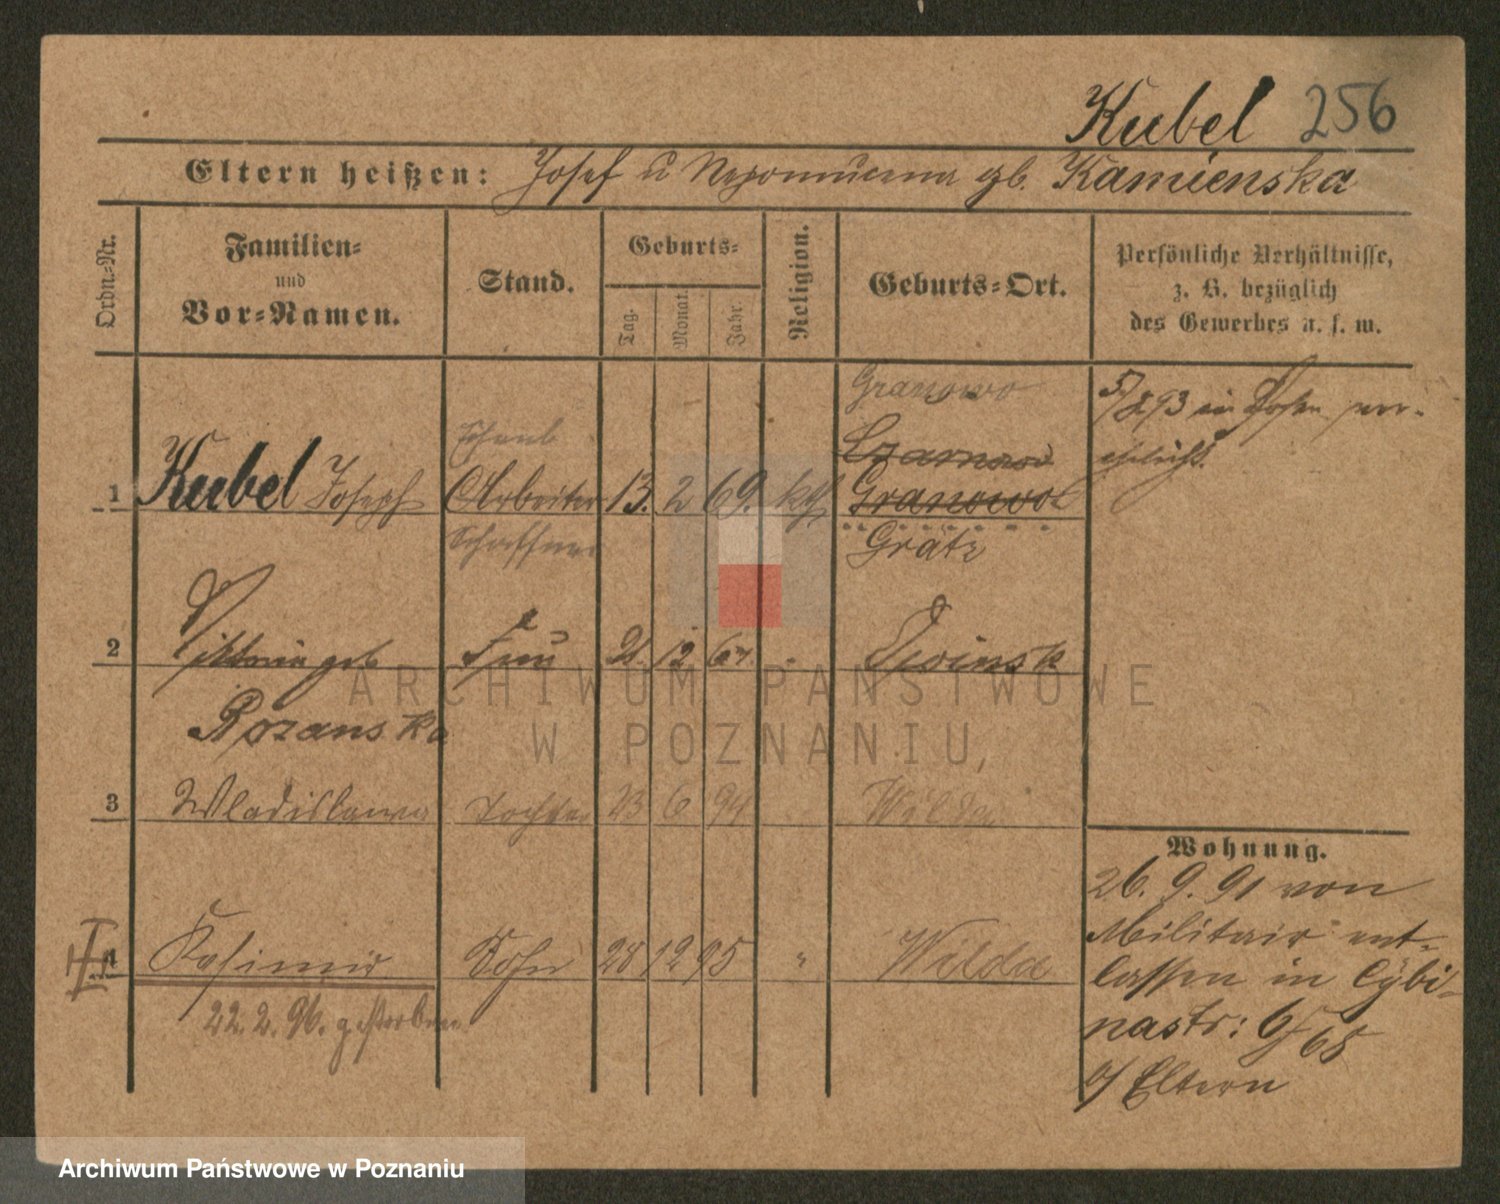 Kubel 256
Eltern heißen: Josef u Nepomucena gb. Kamienska
Ordn.-Nr.
Familien-
und
Vor-Namen.
Stand.
Geburts-
Tag.
Monat.
Jahr.
Religion.
Geburts-Ort.
Persönliche Verhältnisse,
z. B. bezüglich
des Gewerbes u. s. w.
Granowo
5/8 93 in Posen ver-
ehelicht.
Czarnowo
1 Kubel Joseph Arbeiter 13. 2 69. kth Granowo
Schaffner
Grätz
2 Viktoria geb Frau 21. 12 67 Dwinsk
Rozanska
3 Wladislawa Tochter 23 6 94 Wilda
4 Kasimir Sohn 28 12 95 " Wilda
22. 2. 96. gestorben
Wohnung.
26. 9. 91 von
Militair ent-
lassen in Cybi-
nastr: 6/68
b/ Eltern
ARCHIWUM PAŃSTWOWE
W POZNANIU
Archiwum Państwowe w Poznaniu